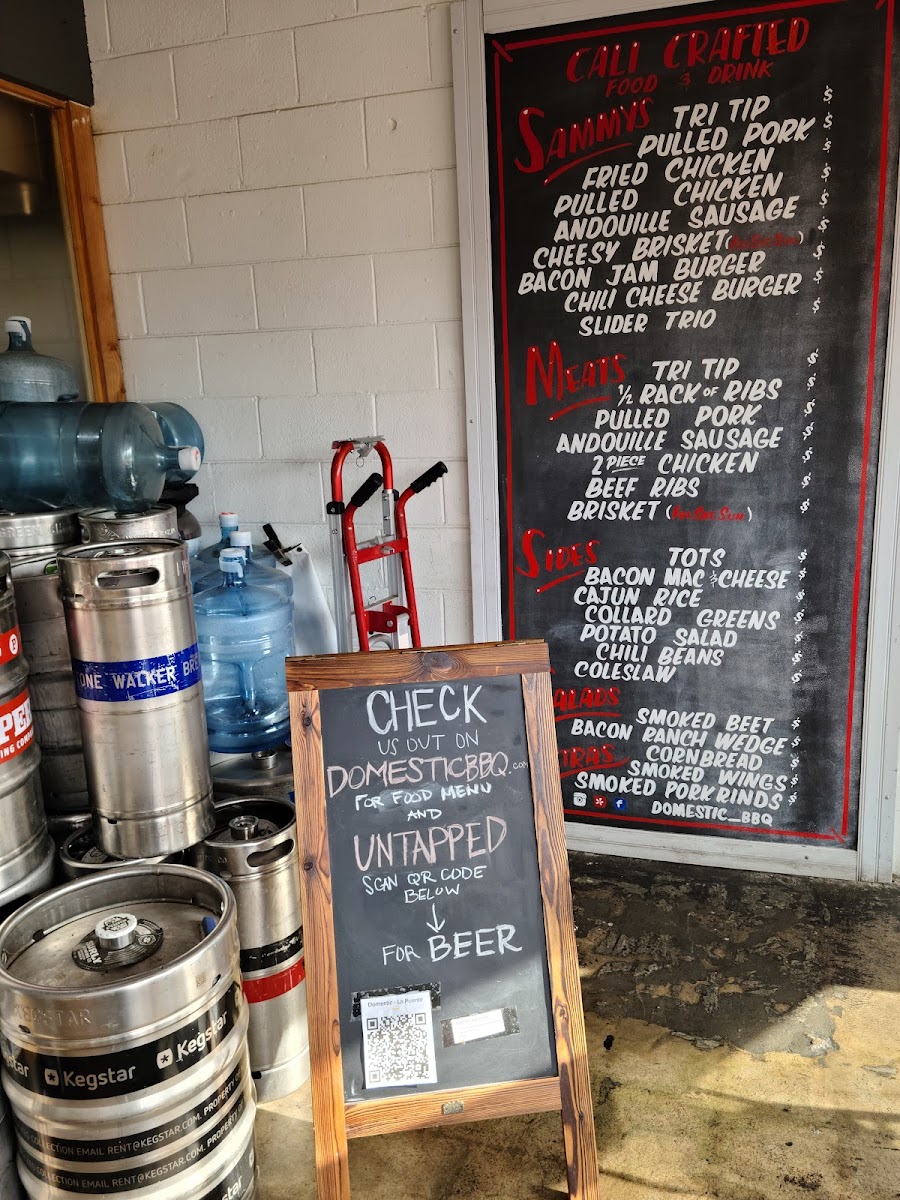 CALI CRAFTED
FOOD & DRINK
SAMMYS
TRI TIP $
PULLED PORK $
FRIED CHICKEN $
PULLED CHICKEN $
ANDOUILLE SAUSAGE $
CHEESY BRISKET ( ) $
BACON JAM BURGER $
CHILI CHEESE BURGER $
SLIDER TRIO $
MEATS
TRI TIP $
1/2 RACK OF RIBS $
PULLED PORK $
ANDOUILLE SAUSAGE $
2 PIECE CHICKEN $
BEEF RIBS $
BRISKET ( Sun) $
SIDES
TOTS $
BACON MAC & CHEESE $
CAJUN RICE $
COLLARD GREENS $
POTATO SALAD $
CHILI BEANS $
COLESLAW $
ALADS
SMOKED BEET $
BACON RANCH WEDGE $
TRAS
CORNBREAD $
SMOKED WINGS $
SMOKED PORK RINDS $
DOMESTIC_BBQ
CHECK
US OUT ON
DOMESTICBBQ.COM
FOR FOOD MENU
AND
UNTAPPED
SCAN QR CODE
BELOW
↓
FOR BEER
Domestic - La Puente
ONE WALKER BRE
PER
ING COM
KEGSTAR
Kegstar
Kegstar
COLLECTION EMAIL RENT@KEGSTAR.COM. PROPERTY
COLLECTION EMAIL RENT@KEGSTAR.COM. PROPERTY
star